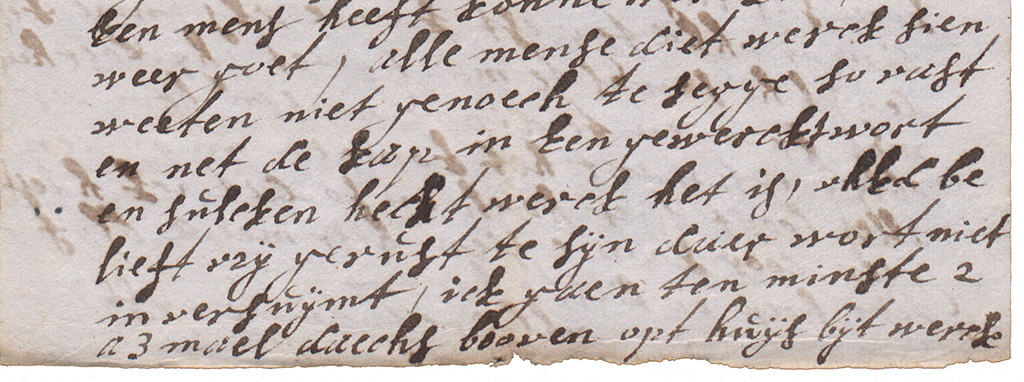 een mens heeft konne
weer goet, alle mense diet werck sien
weeten niet genoech te segge so vast
en net de kap in een gewerckt wort
en sulcken hecht werck het is, uEd be
lieft vrij gerust te sijn daer wort niet
in versuijmt, ick gaen ten minste 2
a 3 mael daechs booven opt huijs bijt werck